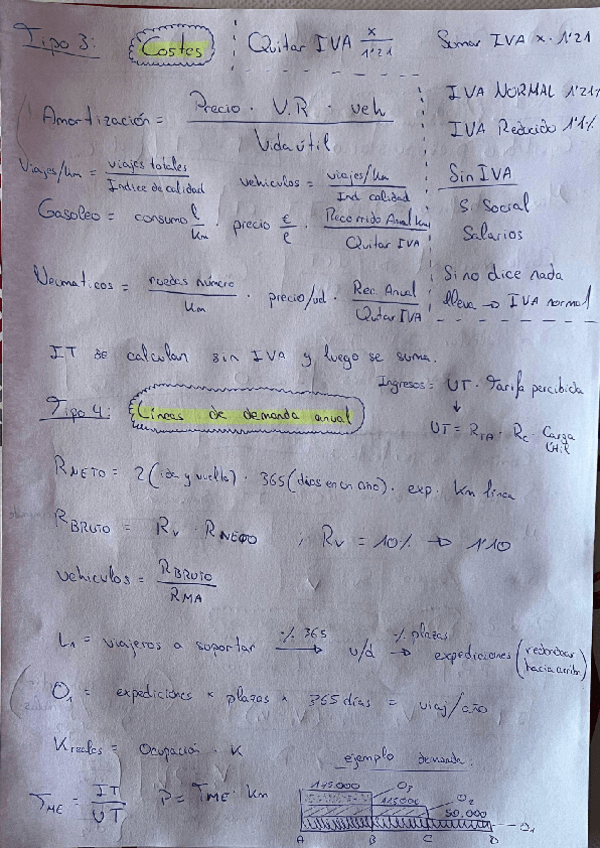 Tipo 3: Costes Quitar IVA x/1'21 Sumar IVA x · 1'21
IVA NORMAL 1'21%
IVA Reducido 1'1%
Amortización = Precio · V.R · veh / Vida útil
Viajes/km = viajes totales / Índice de calidad vehículos = viajes/km / Ind calidad
Sin IVA
S. Social
Salarios
Gasoleo = consumo l/km · precio €/l · Recorrido Anual km / Quitar IVA
Neumaticos = ruedas número / km · precio/ud · Rec. Anual / Quitar IVA
Si no dice nada
lleva → IVA normal
IT se calculan sin IVA y luego se suma.
Ingresos = UT · Tarifa percibida
↓
UT = RTA · Rc · Carga útil
Tipo 4: Líneas de demanda anual
RNETO = 2 (ida y vuelta) · 365 (días en un año) · exp. km línea
RBRUTO = Rv · RNETO , Rv = 10% → 1'10
vehiculos = RBRUTO / RMA
L1 = viajeros a soportar ·/· 365 → v/d ·/· plazas → expediciones (redondear hacia arriba)
O1 = expediciones × plazas × 365 días = viaj/año
K reales = Ocupación · K
ejemplo demanda.
TME = IT/UT P = TME · km
145.000 O3
115000 O2
50.000 O1
A B C D